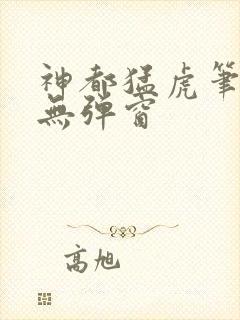 神都猛虎筆
無彈窗
高旭